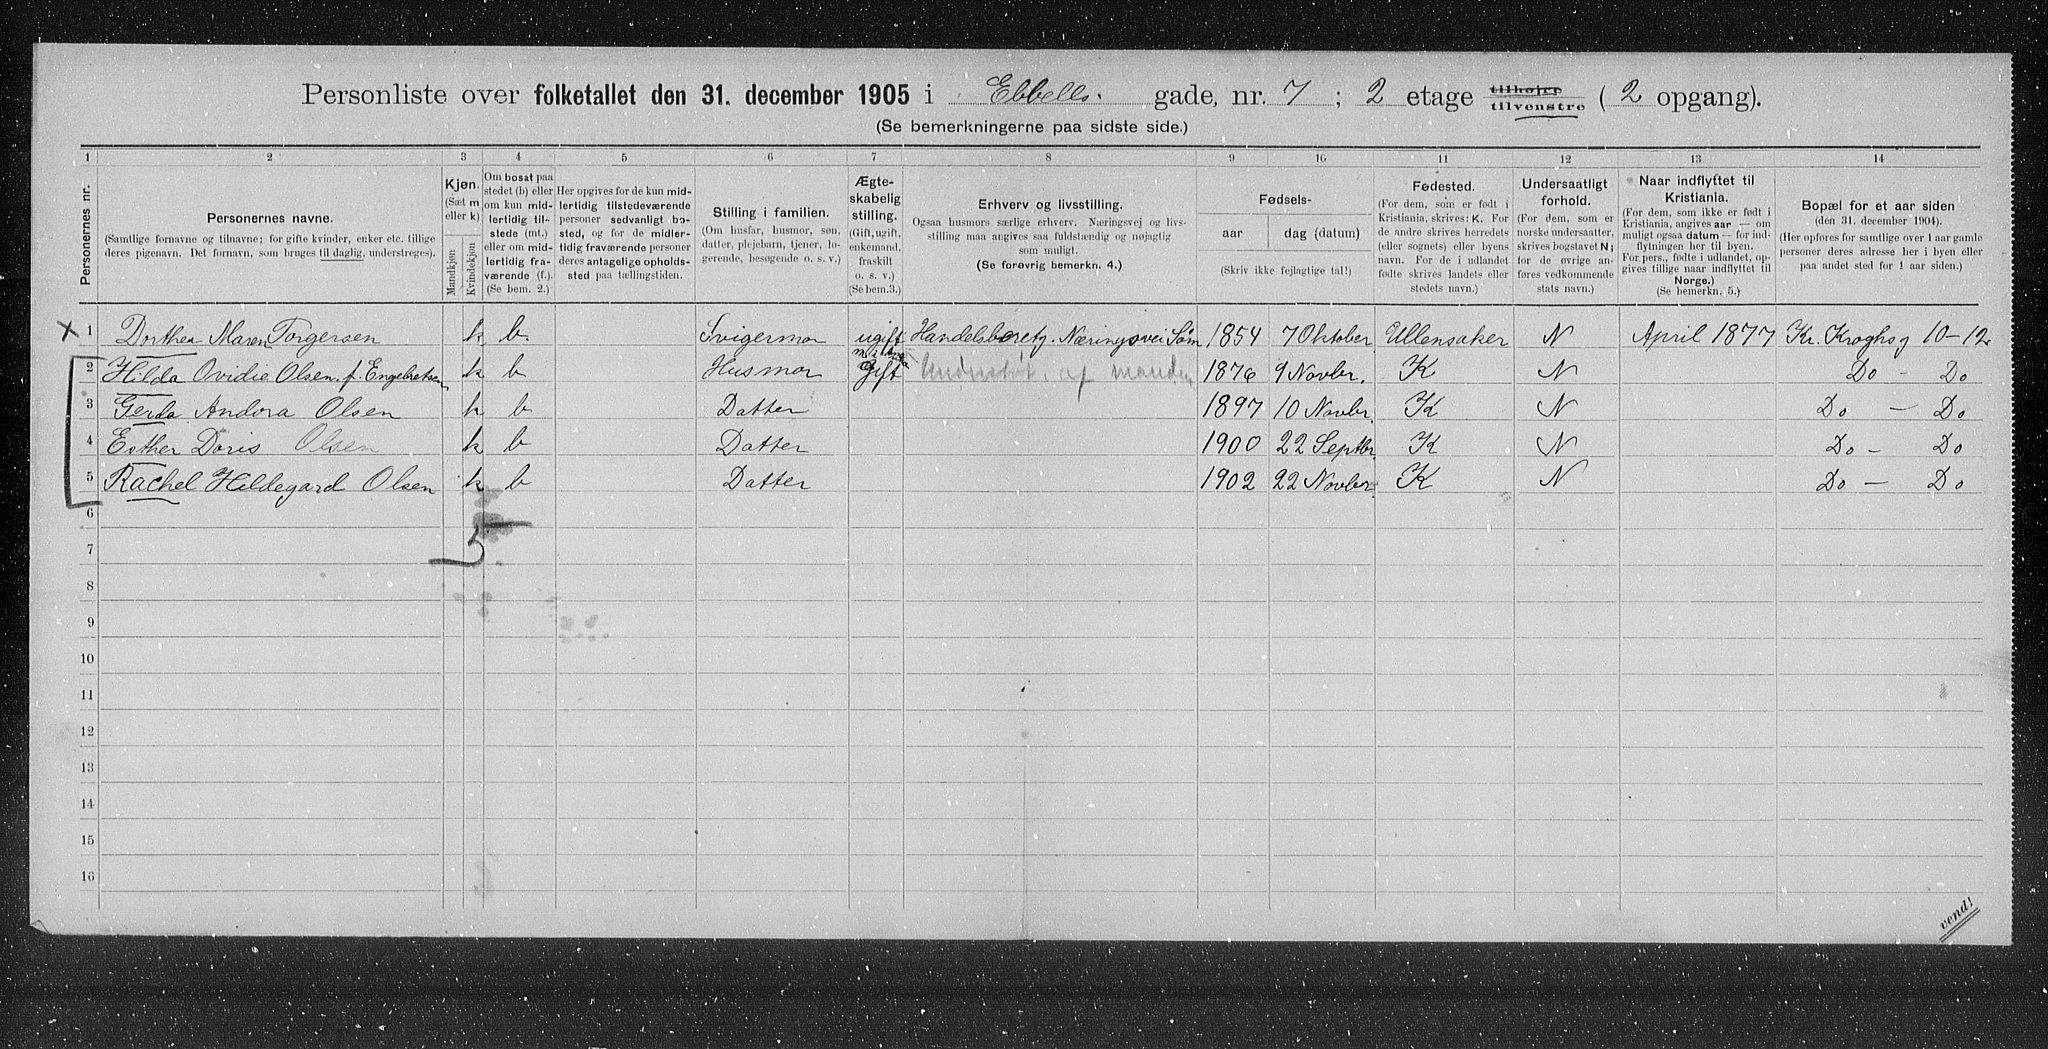 Personliste over folketallet den 31. december 1905 i Ebbells. gade, nr. 7 ; 2 etage tilhøjre tilvenstre ( 2 opgang).
(Se bemerkningerne paa sidste side.)
1 2 3 4 5 6 7 8 9 10 11 12 13 14
Personernes nr.
Personernes navne.
(Samtlige fornavne og tilnavne; for gifte kvinder, enker etc. tillige
deres pigenavn. Det fornavn, som bruges til daglig, understreges).
Kjøn.
(Sæt m
eller k)
Mandkjøn
Kvindekjøn
Om bosat paa
stedet (b) eller
om kun mid-
lertidig til-
stede (mt.)
eller om mid-
lertidig fra-
værende (f.).
(Se bem. 2.)
Her opgives for de kun mid-
lertidig tilstedeværende
personer sedvanlig bo-
sted, og for de midler-
tidig fraværende personer
deres antagelige opholds-
sted paa tællingstiden.
Stilling i familien.
(Om husfar, husmor, søn,
datter, plejebarn, tjener, lo-
gerende, besøgende o. s. v.)
Ægte-
skabelig
stilling.
(Gift, ugift,
enkemand,
fraskilt
o. s. v.)
(Se bem.3.)
Erhverv og livsstilling.
Ogsaa husmors særlige erhverv. Næringsvej og livs-
stilling maa angives saa fuldstændig og nøjagtig
som muligt.
(Se forøvrig bemerkn. 4.)
Fødsels-
aar
dag (datum)
(Skriv ikke fejlagtige tal!)
Fødested.
(For dem, som er født i
Kristiania, skrives: K. For
de andre skrives herredets
(eller sognets) eller byens
navn. For de i udlandet
fødte skrives landets eller
stedets navn.)
Undersaatligt
forhold.
(For dem, som er
norske undersaatter,
skrives bogstavet N;
for de øvrige an-
føres vedkommende
stats navn.)
Naar indflyttet til
Kristiania.
(For dem, som ikke er født i
Kristiania, angives aar — om
muligt ogsaa datum — for ind-
flytningen her til byen.
For pers., fødte i udlandet, op-
gives tillige naar indflyttet til
Norge.)
(Se bemerkn. 5.)
Bopæl for et aar siden
(den 31. december 1904).
(Her opføres for samtlige over 1 aar gamle
personer deres adresse her i byen eller
paa andet sted for 1 aar siden.)
x 1 Dorthea Maren Torgersen k b. Svigermor ugift Handelsberetg. Næringsvei Søm 1854 7 Oktober Ullensaker N April 1877 Kr. Kroghs g 10-12
2 Hilda Ovidie Olsen. f. Engebretsen k b Husmor Gift Understøt. af manden 1876 9 Novbr. K N Do - Do
3 Gerda Andora Olsen k b Datter 1897 10 Novbr K N Do — Do
4 Esther Doris Olsen k b Datter 1900 22 Septbr. K N Do - Do
5 Rachel Hildegard Olsen k b Datter 1902 22 Novbr. K N Do — Do
6
5
7
8
9
10
11
12
13
14
15
16
vend!